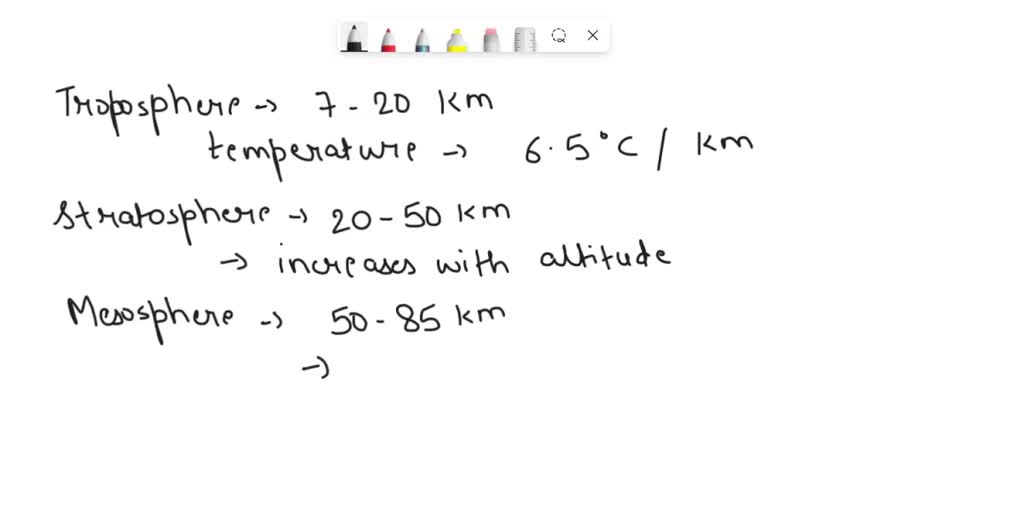 Troposphere → 7 - 20 km
temperature → 6.5°C / km
Stratosphere → 20 - 50 km
→ increases with altitude
Mesosphere → 50 - 85 km
→